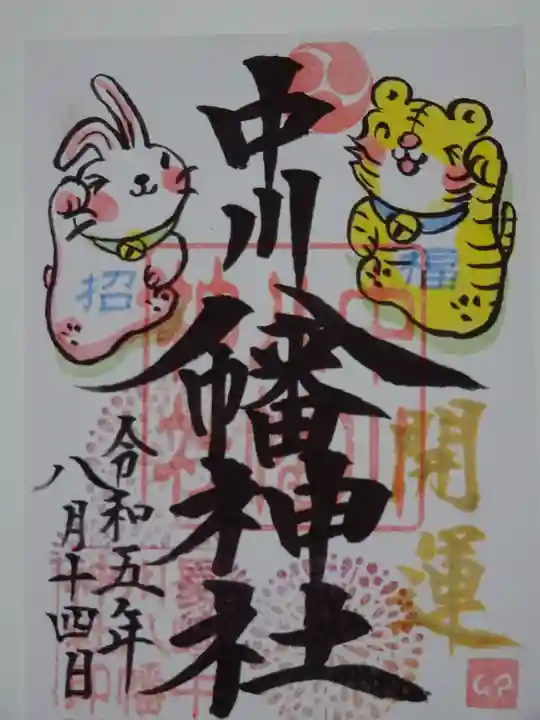 開運
福
中川八幡神社
招
令和五年
八月十四日